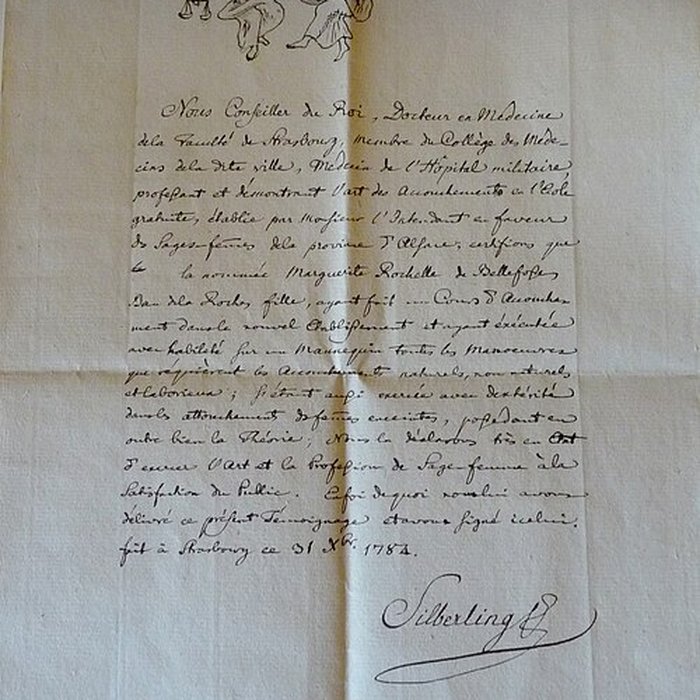 Nous Conseiller du Roi, Docteur en Medecine
dela Faculté de Strasbourg, membre du Collège des Méde-
cins dela dite ville, Medecin de l'Hôpital militaire,
professant et démontrant l'art des Accouchements en l'Ecole
gratuite, établie par Monsieur l'Intendant en faveur
des Sages-femmes dela province d'Alsace, certifions que
la nommée Marguerite Rochelle de Bellefosse
Ban dela Roche, fille, ayant fait un Cours d'Accouche-
ment dans le nouvel Etablissement et ayant éxécutée
avec habileté sur un Mannequin toutes les Manoeuvres
que réquièrent les Accouchements naturels, non naturels
et laborieux; s'étant aussi exercée avec dextérité
dans les attouchements des femmes enceintes, possédant en
outre bien la Théorie; Nous la déclarons très en Etat
d'exercer l'Art et la Profession de Sage-femme à la
Satisfaction du Public. En foi de quoi nous lui avons
délivré ce présent Témoignage et avons signé icelui.
fait à Strasbourg ce 31 Xbr. 1784.
Silberling